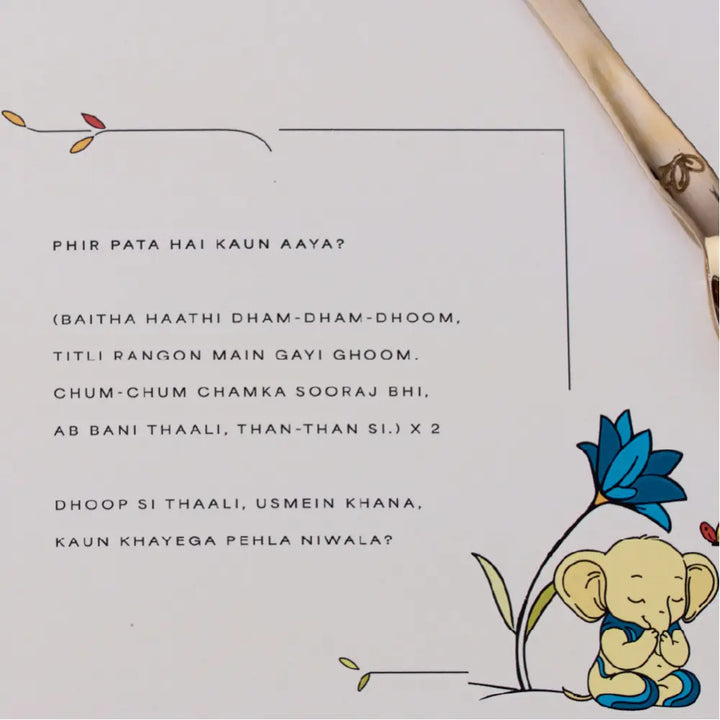 PHIR PATA HAI KAUN AAYA?
(BAITHA HAATHI DHAM-DHAM-DHOOM,
TITLI RANGON MAIN GAYI GHOOM.
CHUM-CHUM CHAMKA SOORAJ BHI,
AB BANI THAALI, THAN-THAN SI.) X 2
DHOOP SI THAALI, USMEIN KHANA,
KAUN KHAYEGA PEHLA NIWALA?